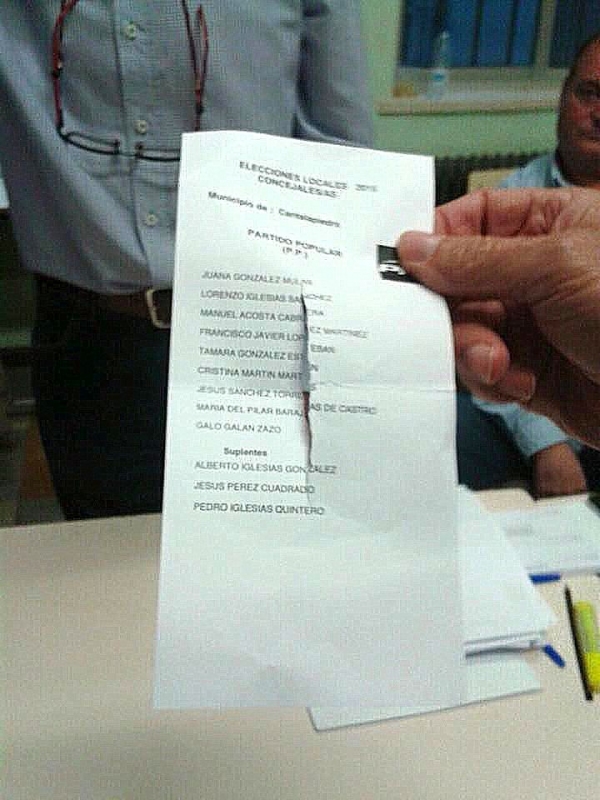 ELECCIONES LOCALES 2015
CONCEJALES/AS
Municipio de : Cantalapiedra
PARTIDO POPULAR
(P.P.)
JUANA GONZALEZ
LORENZO IGLESIAS SANCHEZ
MANUEL ACOSTA CABRERA
FRANCISCO JAVIER LOPEZ MARTINEZ
TAMARA GONZALEZ ESTEBAN
CRISTINA MARTIN MARTIN
JESUS SANCHEZ TORRES
MARIA DEL PILAR BARAJAS DE CASTRO
GALO GALAN ZAZO
Suplentes
ALBERTO IGLESIAS GONZALEZ
JESUS PEREZ CUADRADO
PEDRO IGLESIAS QUINTERO